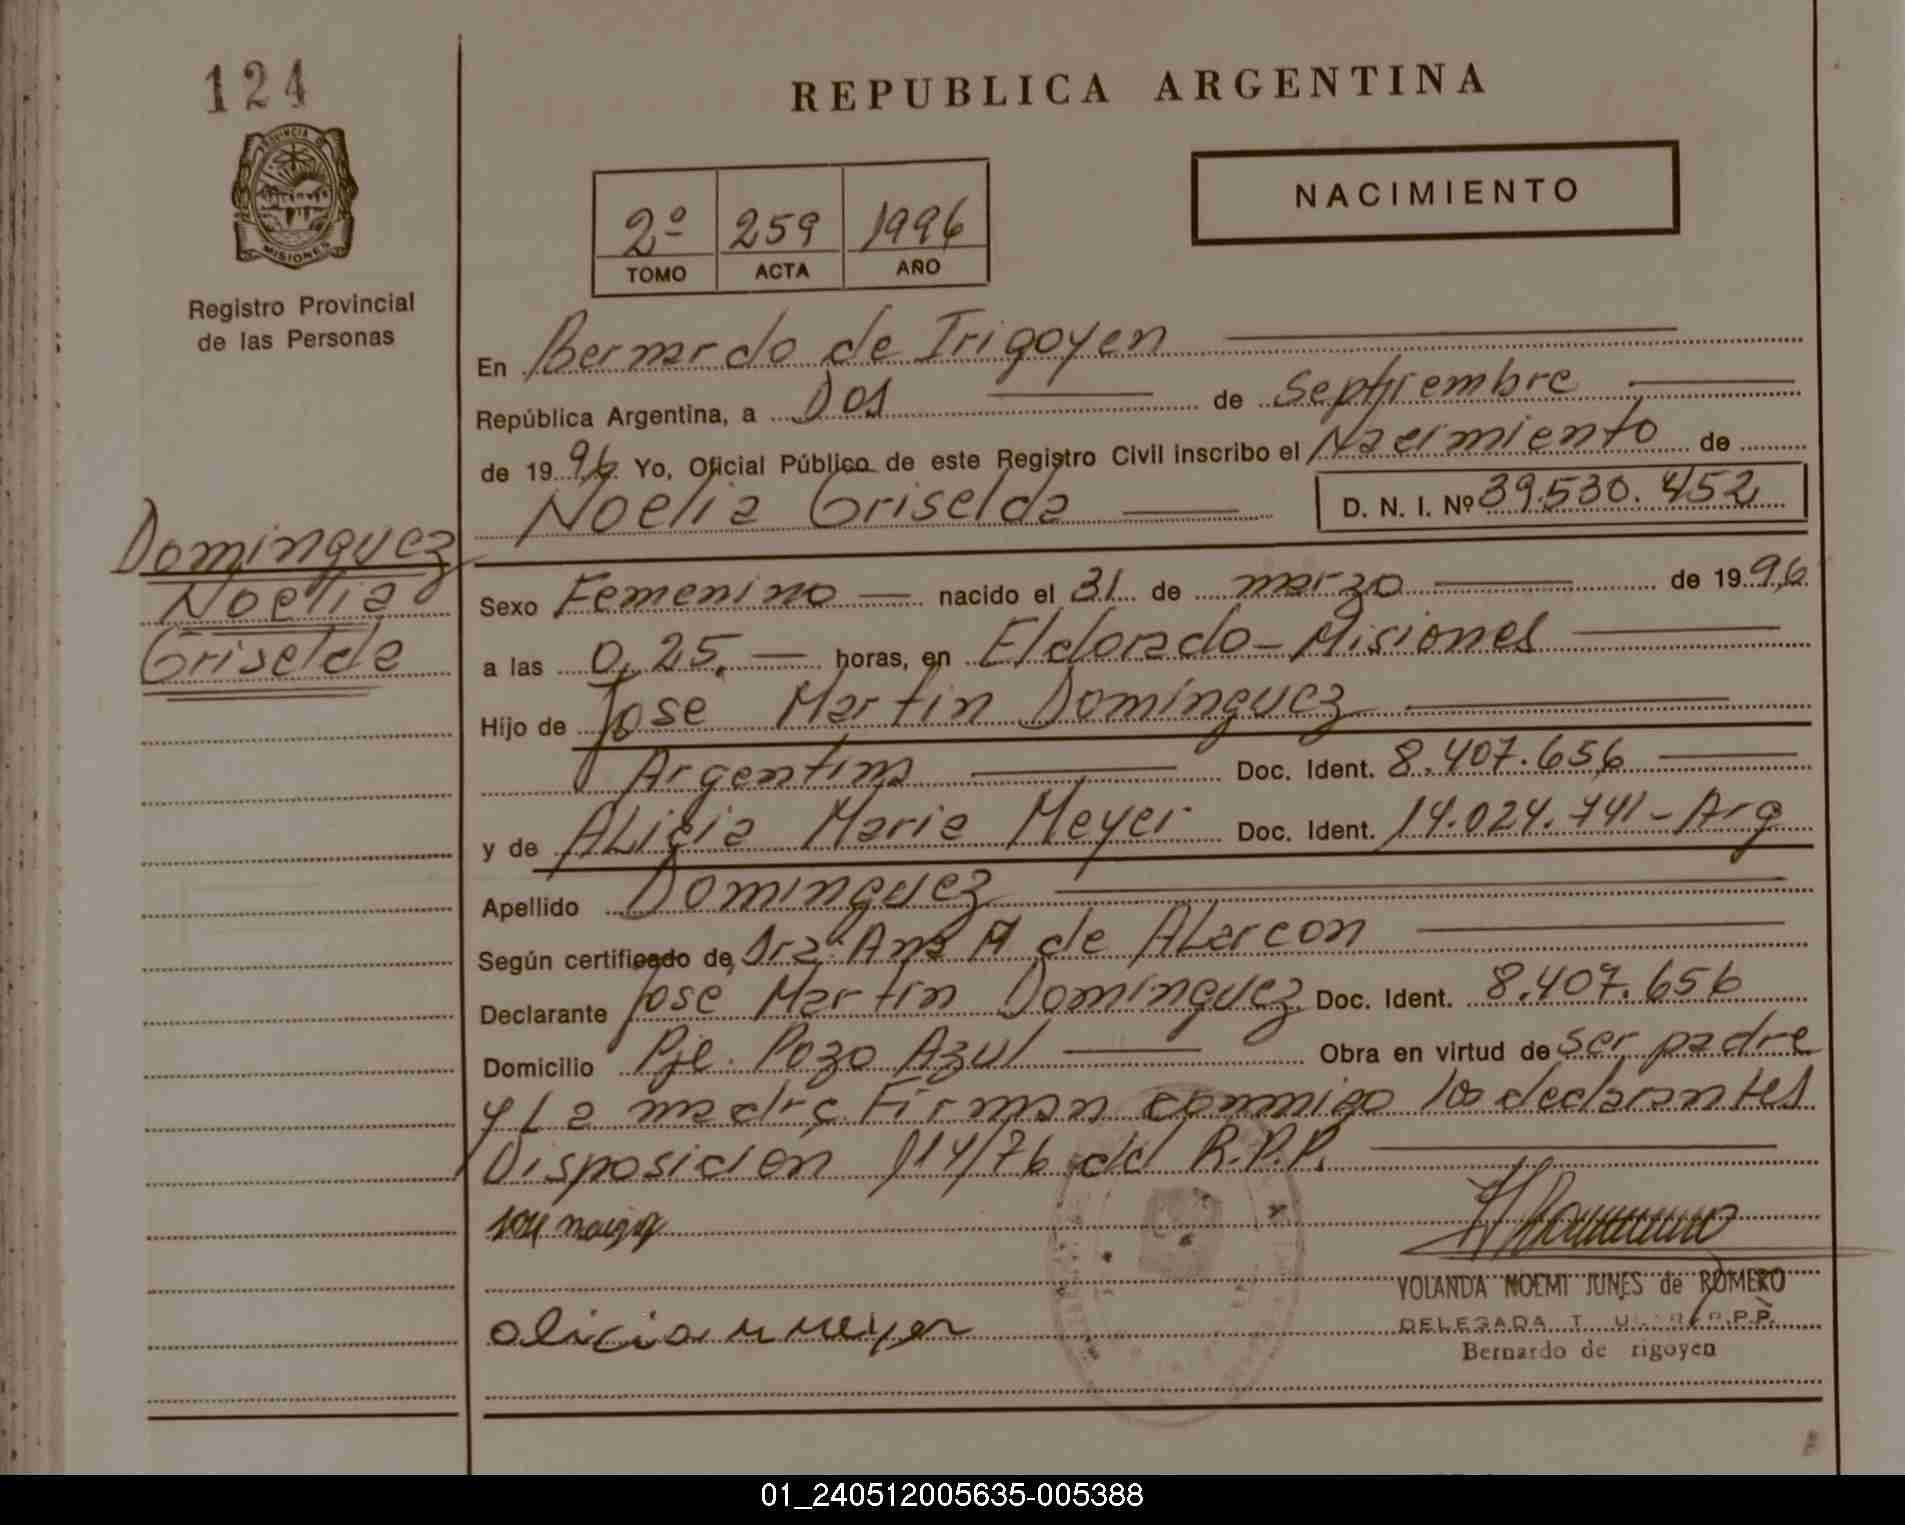 124
REPUBLICA ARGENTINA
PROVINCIA D
MISIONES
Registro Provincial
de las Personas
2º 259 1996
TOMO ACTA AÑO
NACIMIENTO
En Bernardo de Irigoyen
República Argentina, a Dos de Septiembre
de 1996 Yo, Oficial Público de este Registro Civil inscribo el Nacimiento de
Noelia Griselda D. N. I. Nº 39.530.452
Dominguez
Noelia
Griselda
Sexo Femenino nacido el 31 de marzo de 1996
a las 0,25. horas, en Eldorado - Misiones
Hijo de José Martin Domínguez
Argentina Doc. Ident. 8.407.656
y de Alicia Maria Meyer Doc. Ident. 14.024.741 - Arg
Apellido Dominguez
Según certificado de Dra. Ana M de Alarcon
Declarante José Martin Domínguez Doc. Ident. 8.407.656
Domicilio Pje. Pozo Azul Obra en virtud de ser padre
y La madre. Firman conmigo los declarantes
Disposicion 114/76 del R.P.P.
alicia m meyer
YOLANDA NOEMI JUNES de ROMERO
DELEGADA R.P.P.
Bernardo de rigoyen
01_240512005635-005388